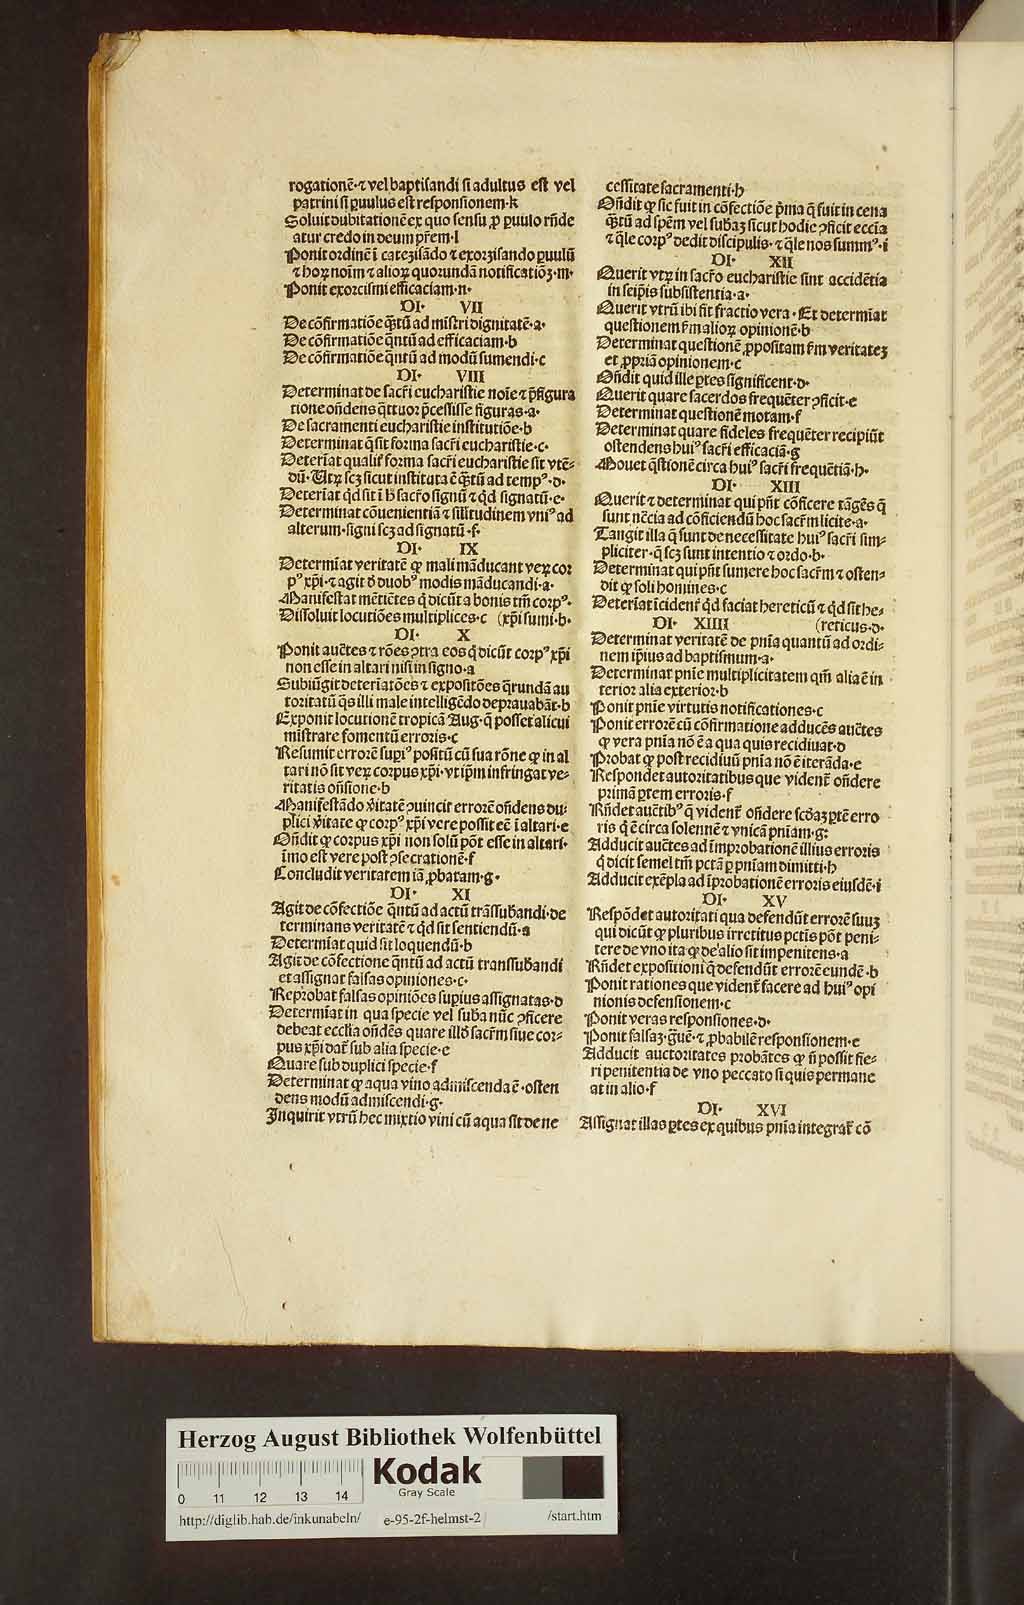 rogationē·⁊ vel baptisandi si adultus est vel
patrini si ꝑuulus est responsionem·k
Soluit dubitationē ex quo sensu ꝓ ꝑuulo rn̄de
atur credo in deum pr̄em·l
Ponit ordinē ī catezisādo ⁊ exorzisando ꝑuulū
⁊ hoꝝ noīm ⁊ alioꝝ quorundā notificatiōꝫ·m·
Ponit exorcismi efficaciam·n·
DI· VII
De cōfirmatiōe q̄tū ad mīstri dignitatē·a·
De cōfirmatiōe q̄ntū ad efficaciam·b
De cōfirmatiōe q̄ntū ad modū sumendi·c
DI· VIII
Determinat de sacr̄i eucharistie noīe ⁊ p̄figura
tione on̄dens q̄ttuor p̄cessisse figuras·a·
De sacramenti eucharistie institutiōe·b
Determinat q̄ sit forma sacr̄i eucharistie·c·
Deterīat qualit̄ forma sacr̄i eucharistie sit vtē-
dū· Vtꝝ scꝫ sicut instituta ē q̄tū ad tempꝰ·d·
Deterīat qd̄ sit ī h̄ sacr̄o signū ⁊ qd̄ signatū·e·
Determinat cōuenientiā ⁊ sīlitudinem vniꝰ ad
alterum·signi scꝫ ad signatū·f·
DI· IX
Determīat veritatē ꝙ mali māducant veꝝ cor
pꝰ xp̄i·⁊ agit d̄ duobꝰ modis māducandi·a·
Manifestat mētiētes q̄ dicūt a bonis tm̄ corpꝰ·
Dissoluit locutiōes multiplices·c (xp̄i sumi·b·
DI· X
Ponit auc̄tes ⁊ rōes ↄtra eos q̄ dicūt corpꝰ xp̄i
non esse in altari nisi in signo·a
Subiūgit deteriatōes ⁊ expositōes q̄rundā au
toritatū q̄s illi male intelligēdo deprauabāt·b
Exponit locutionē tropicā Aug·q̄ posset alicui
mīstrare fomentū erroris·c
Resumit errorē supiꝰ positū cū sua rōne ꝙ in al
tari nō sit veꝝ corpus xp̄i·vt ip̄m infringat ve-
ritatis on̄sione·b
Manifestādo v̄itatē ↄuincit errorē on̄dens du-
plici v̄itate ꝙ corpꝰ xp̄i vere possit eē ī altari·e
On̄dit ꝙ corpus xp̄i non solū pōt esse in altari·
īmo est vere post ↄsecrationē·f
Concludit veritatem iā ꝓbatam·g·
DI· XI
Agit de cōfectiōe q̄ntū ad actū trāssub̄andi·de
terminans veritatē ⁊ qd̄ sit sentiendū·a
Determīat quid sit loquendū·b
Agit de cōfectione q̄ntū ad actū transsub̄andi
et assignat falsas opiniones·c·
Reprobat falsas opiniōes supius assignatas·d
Determīat in qua specie vel sub̄a nūc ↄficere
debeat ecc̄lia on̄dēs quare illd̄ sacr̄m siue cor-
pus xp̄i dat̄ sub alia specie·e
Quare sub duplici specie·f
Determinat ꝙ aqua vino admiscenda ē·osten
dens modū admiscendi·g·
Inquirit vtrū hec mixtio vini cū aqua sit de ne
cessitate sacramenti·h
On̄dit ꝙ sic fuit in cōfectiōe p̄ma q̄ fuit in cena
q̄tū ad spēm vel sub̄aꝫ sicut hodie ↄficit eccīa
⁊ q̄le corpꝰ dedit discipulis·⁊ q̄le nos summꝰ·i
DI· XII
Querit vtꝝ in sacr̄o eucharistie sint accidētia
in seip̄is subsistentia·a·
Querit vtrū ibi fit fractio vera· Et determīat
questionem s̄m alioꝝ opinionē·b
Determinat questionē ꝓpositam s̄m veritateꝫ
et ꝓpriā opinionem·c
On̄dit quid ille ꝑtes significent·d·
Querit quare sacerdos frequēter ↄficit·e
Determinat questionē motam·f
Determinat quare fideles frequēter recipiūt
ostendens huiꝰ sacr̄i efficaciā·g
Mouet q̄stionē circa huiꝰ sacr̄i frequētiā·h·
DI· XIII
Querit ⁊ determinat qui pn̄t cōficere tāgēs q̄
sunt nēcia ad cōficiendū hoc sacr̄m licite·a·
Tangit illa q̄ sunt de necessitate huiꝰ sacr̄i sim-
pliciter·q̄ scꝫ sunt intentio ⁊ ordo·b·
Determinat qui pn̄t sumere hoc sacr̄m ⁊ osten-
dit ꝙ soli homines·c
Deterīat īcident̄ qd̄ faciat hereticū ⁊ qd̄ sit he-
DI· XIIII (reticus·d·
Determinat veritatē de pn̄ia quantū ad ordi-
nem ip̄ius ad baptismum·a·
Determinat pn̄ie multiplicitatem qm̄ alia ē in
terior alia exterior·b
Ponit pn̄ie virtutis notificationes·c
Ponit errorē cū cōfirmatione adducēs auc̄tes
ꝙ vera pn̄ia nō ē a qua quis recidiuat·d
Probat ꝙ post recidiuū pn̄ia nō ē iterāda·e
Respondet autoritatibus que vident̄ on̄dere
primā ꝑtem erroris·f
Rn̄det auc̄tibꝰ q̄ vident̄ on̄dere scd̄aꝫ ꝑtē erro
ris q̄ ē circa solennē ⁊ vnicā pn̄iam·g·
Adducit auc̄tes ad īmprobationē illius erroris
q̄ dicit semel tm̄ pctā ꝑ pn̄iam dimitti·h
Adducit exēpla ad īprobationē erroris eiusdē·i
DI· XV
Respōdet autoritati qua defendūt errorē suuꝫ
qui dicūt ꝙ pluribus irretitus pctīs pōt peni-
tere de vno ita ꝙ de alio sit impenitens·a
Rn̄det expositioni q̄ defendūt errorē eundē·b
Ponit rationes que vident̄ facere ad huiꝰ opi
nionis defensionem·c
Ponit veras responsiones·d·
Ponit falsaꝫ·g̅uē·⁊ ꝓbabilē responsionem·e
Adducit auctoritates probātes ꝙ n̄ possit fie-
ri penitentia de vno peccato si quis permane
at in alio·f
DI· XVI
Assignat illas ꝑtes ex quibus pn̄ia integrat̄ cō
Herzog August Bibliothek Wolfenbüttel
Kodak
Gray Scale
0 11 12 13 14
http://diglib.hab.de/inkunabeln/ e-95-2f-helmst-2 /start.htm